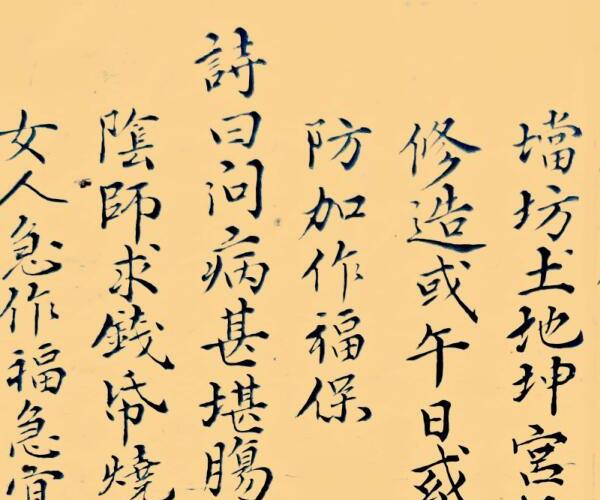 壋坊土地坤宮
修造或午日或
防加作福保
詩曰问病甚堪膓
陰師求錢帋燒
女人急作福急宜